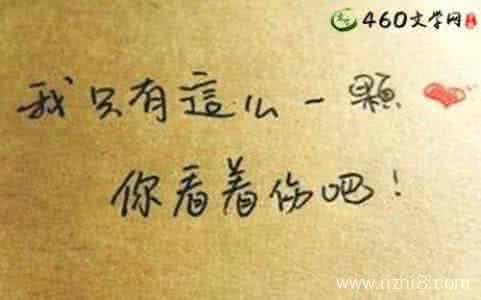 460文学网
我只有這么一顆
你看着伤吧!
www.rizhi8.com